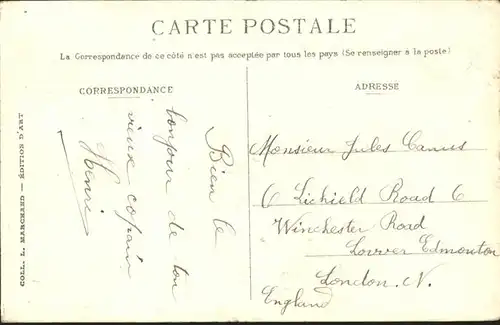 CARTE POSTALE
La Correspondance de ce côté n'est pas acceptée par tous les pays (Se renseigner à la poste)
CORRESPONDANCE
Bien le
bonjour de ton
vieux copain
Henri
ADRESSE
Monsieur Jules Camus
6 Lichield Road 6
Winchester Road
Lowver Edmonton
London. N.
England
COLL. L. MARCHAND — ÉDITION D'ART